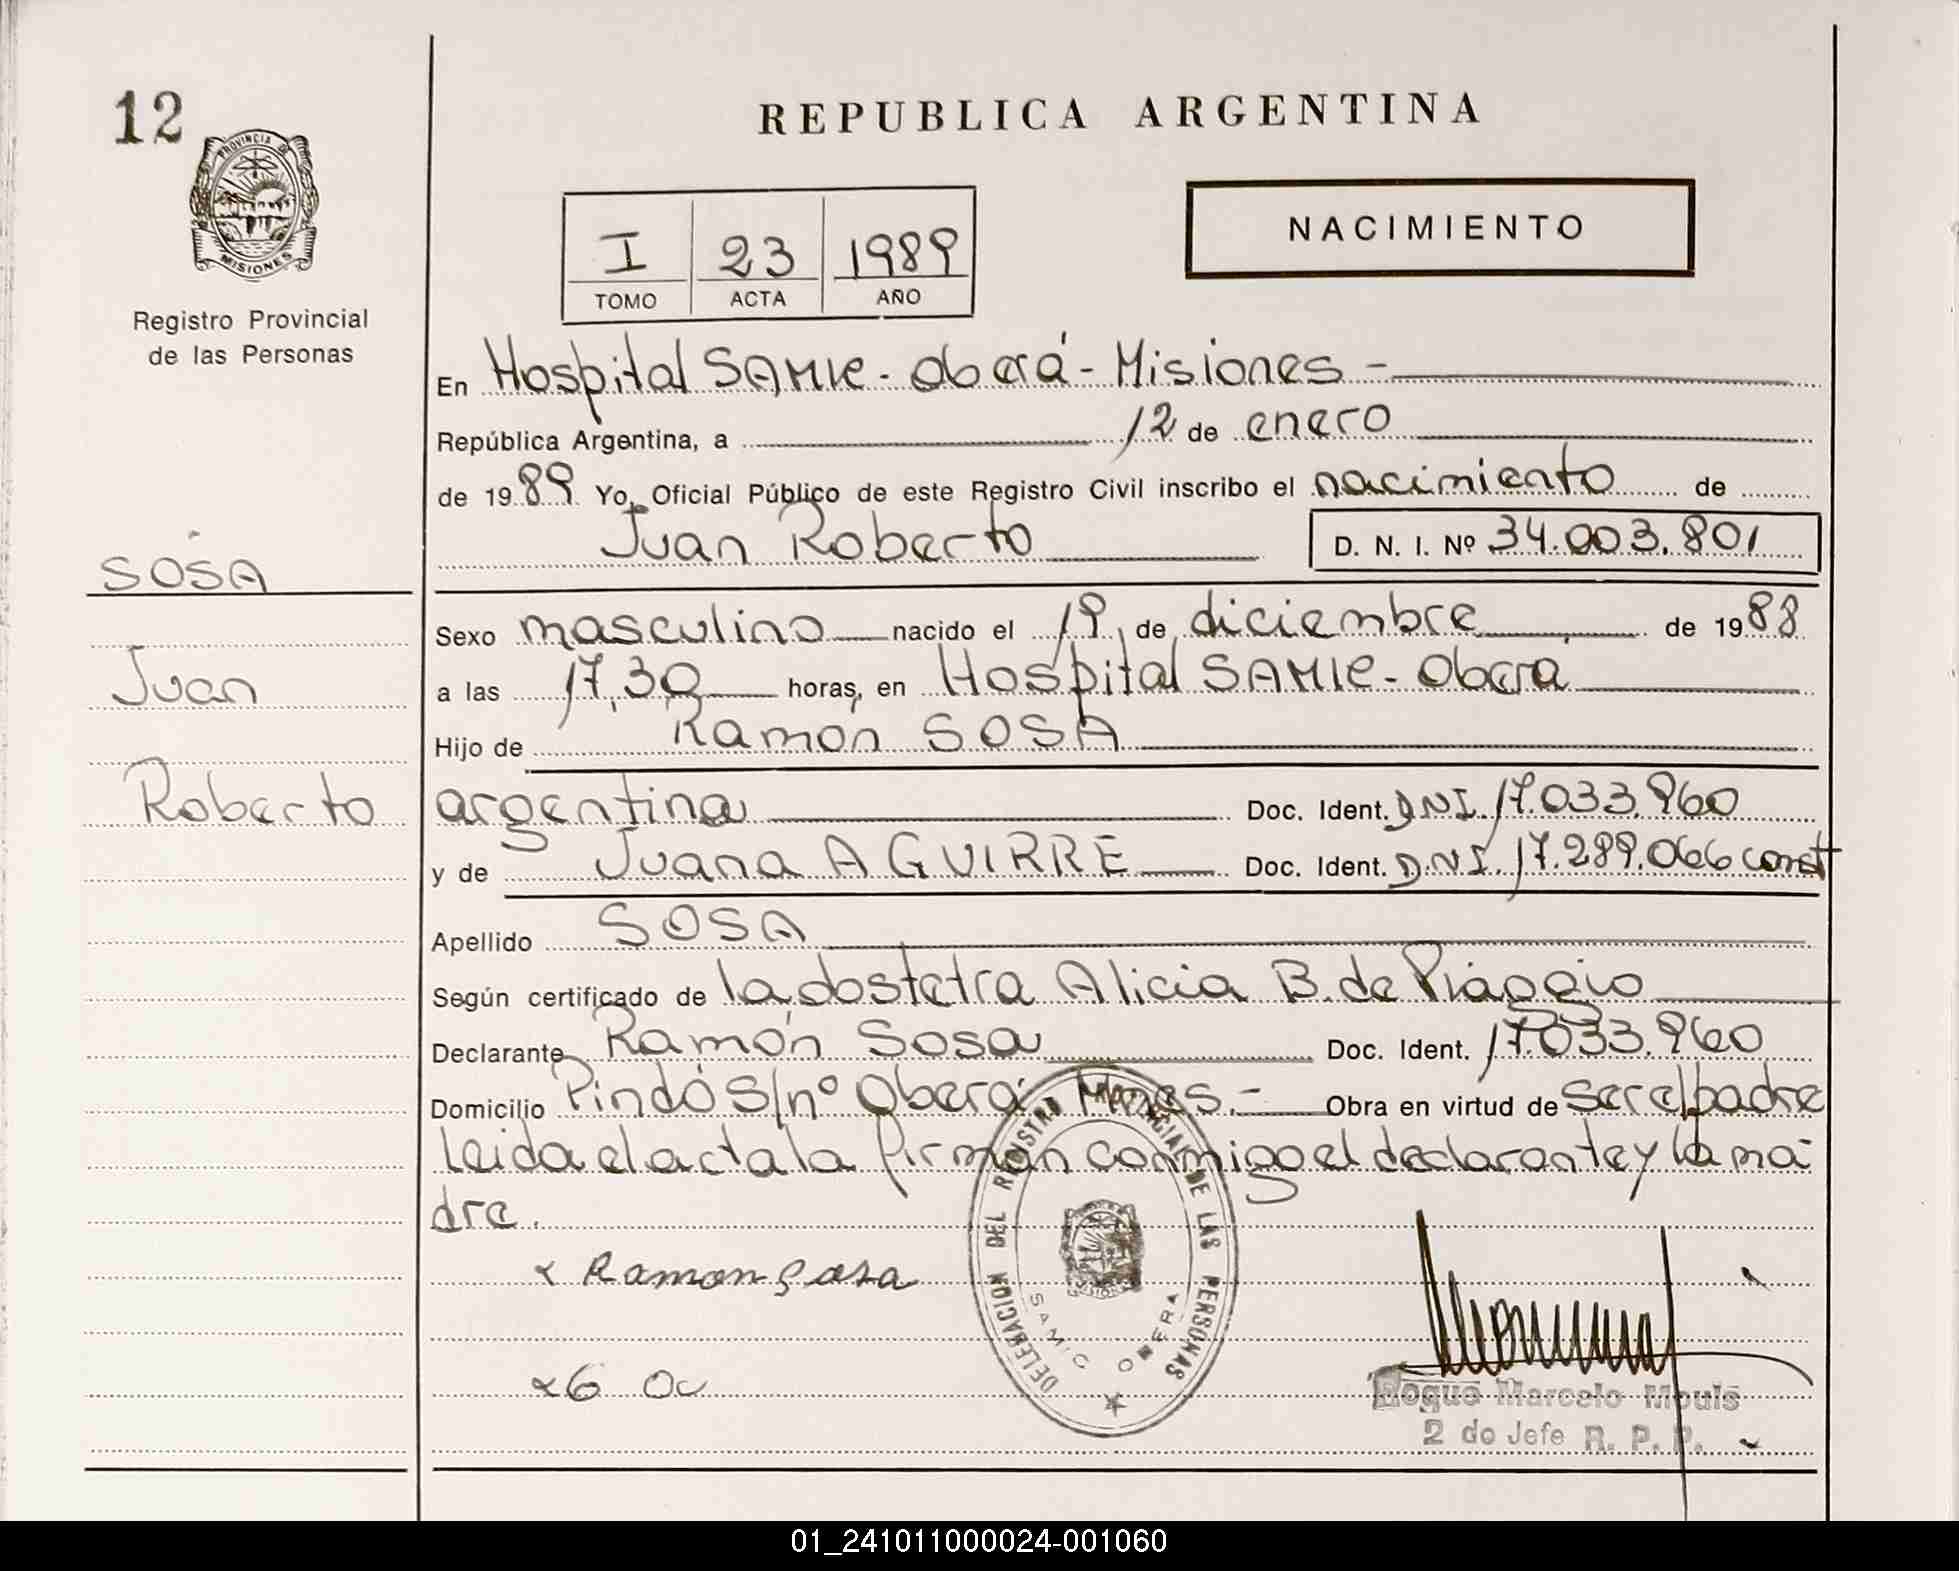 12
PROVINCIA DE
MISIONES
Registro Provincial
de las Personas
SOSA
Juan
Roberto
REPUBLICA ARGENTINA
I 23 1989
TOMO ACTA AÑO
NACIMIENTO
En Hospital SAMIC - Oberá - Misiones -
República Argentina, a 12 de enero
de 1989 Yo, Oficial Público de este Registro Civil inscribo el nacimiento de
Juan Roberto D. N. I. Nº 34.003.801
Sexo masculino nacido el 19 de diciembre de 1988
a las 17,30 horas, en Hospital SAMIC - Oberá
Hijo de Ramón SOSA
argentina Doc. Ident. DNI. 17.033.960
y de Juana AGUIRRE Doc. Ident. D.N.I. 17.289.066 const
Apellido SOSA
Según certificado de la obstetra Alicia B. de Piaggio
Declarante Ramón Sosa Doc. Ident. 17.033.960
Domicilio Pindó S/nº Oberá Mnes. - Obra en virtud de ser el padre
Leida el acta la firman conmigo el declarante y la ma
dre.
Ramon Sosa
DELEGACION DEL REGISTRO PROVINCIAL DE LAS PERSONAS
SAMIC OBERA
Roque Marcelo Mouls
2 do Jefe R. P. P.
01_241011000024-001060